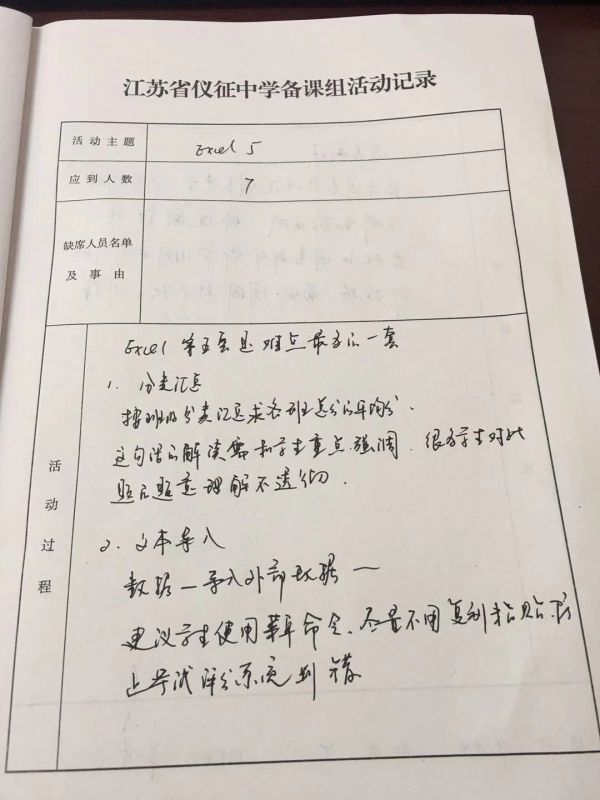 江苏省仪征中学备课组活动记录
活动主题
Excel 5
应到人数
7
缺席人员名单
及事由
活动过程
Excel 第五套是难点最多的一套
1. 分类汇总
按班级分类汇总求各班总分的平均分.
这句话的解读需和学生重点强调. 很多学生对此
题的题意理解不透彻.
2. 文本导入
数据—导入外部数据—
建议学生使用菜单命令、尽量不用复制粘贴,防
止考试评分系统判错